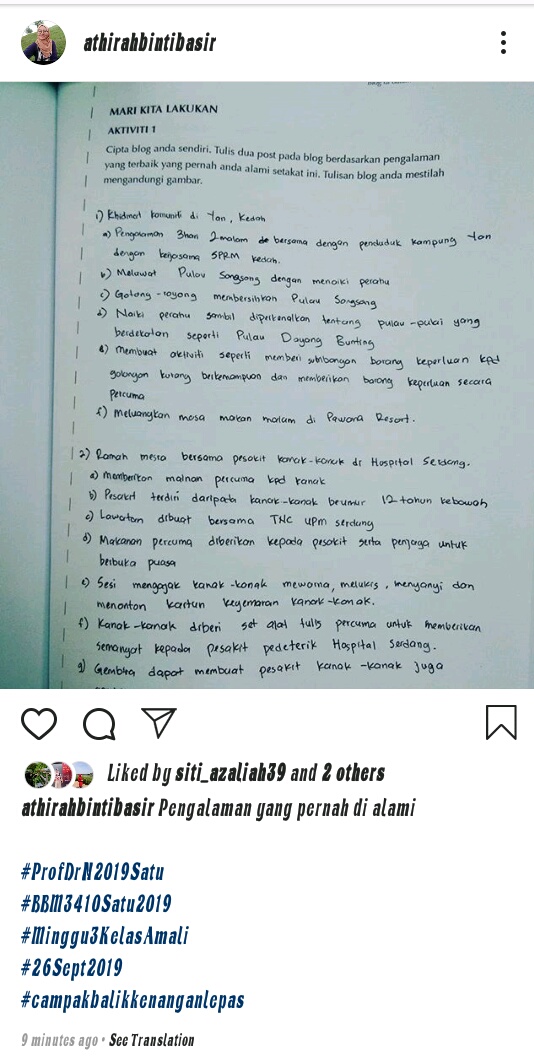 athirahbintibasir
MARI KITA LAKUKAN
AKTIVITI 1
Cipta blog anda sendiri. Tulis dua post pada blog berdasarkan pengalaman
yang terbaik yang pernah anda alami setakat ini. Tulisan blog anda mestilah
mengandungi gambar.
1) Khidmat komuniti di Yan, Kedah
a) Pengalaman 3hari 2malam bersama dengan penduduk kampung Yan
dengan kerjasama SPRM Kedah.
b) Melawat Pulau Songsong dengan menaiki perahu
c) Gotong-royong membersihkan Pulau Songsong
d) Naiki perahu sambil diperkenalkan tentang pulau-pulau yang
berdekatan seperti Pulau Dayang Bunting
e) Membuat aktiviti seperti memberi sumbangan barang keperluan kpd
golongan kurang berkemampuan dan memberikan barang keperluan secara
percuma
f) Meluangkan masa makan malam di Pawana Resort.
2) Ramah mesra bersama pesakit kanak-kanak di Hospital Serdang.
a) Memberikan mainan percuma kpd kanak
b) Pesakit terdiri daripada kanak-kanak berumur 12 tahun kebawah
c) Lawatan dibuat bersama TNC UPM serdang
d) Makanan percuma diberikan kepada pesakit serta penjaga untuk
berbuka puasa
e) Sesi mengajak kanak-kanak mewarna, melukis, menyanyi dan
menonton kartun kegemaran kanak-kanak.
f) Kanak-kanak diberi set alat tulis percuma untuk memberikan
semangat kepada pesakit pedeterik Hospital Serdang.
g) Gembira dapat membuat pesakit kanak-kanak juga
Liked by siti_azaliah39 and 2 others
athirahbintibasir Pengalaman yang pernah di alami
#ProfDrN2019Satu
#BBM3410Satu2019
#Minggu3KelasAmali
#26Sept2019
#campakbalikkenanganlepas
9 minutes ago • See Translation